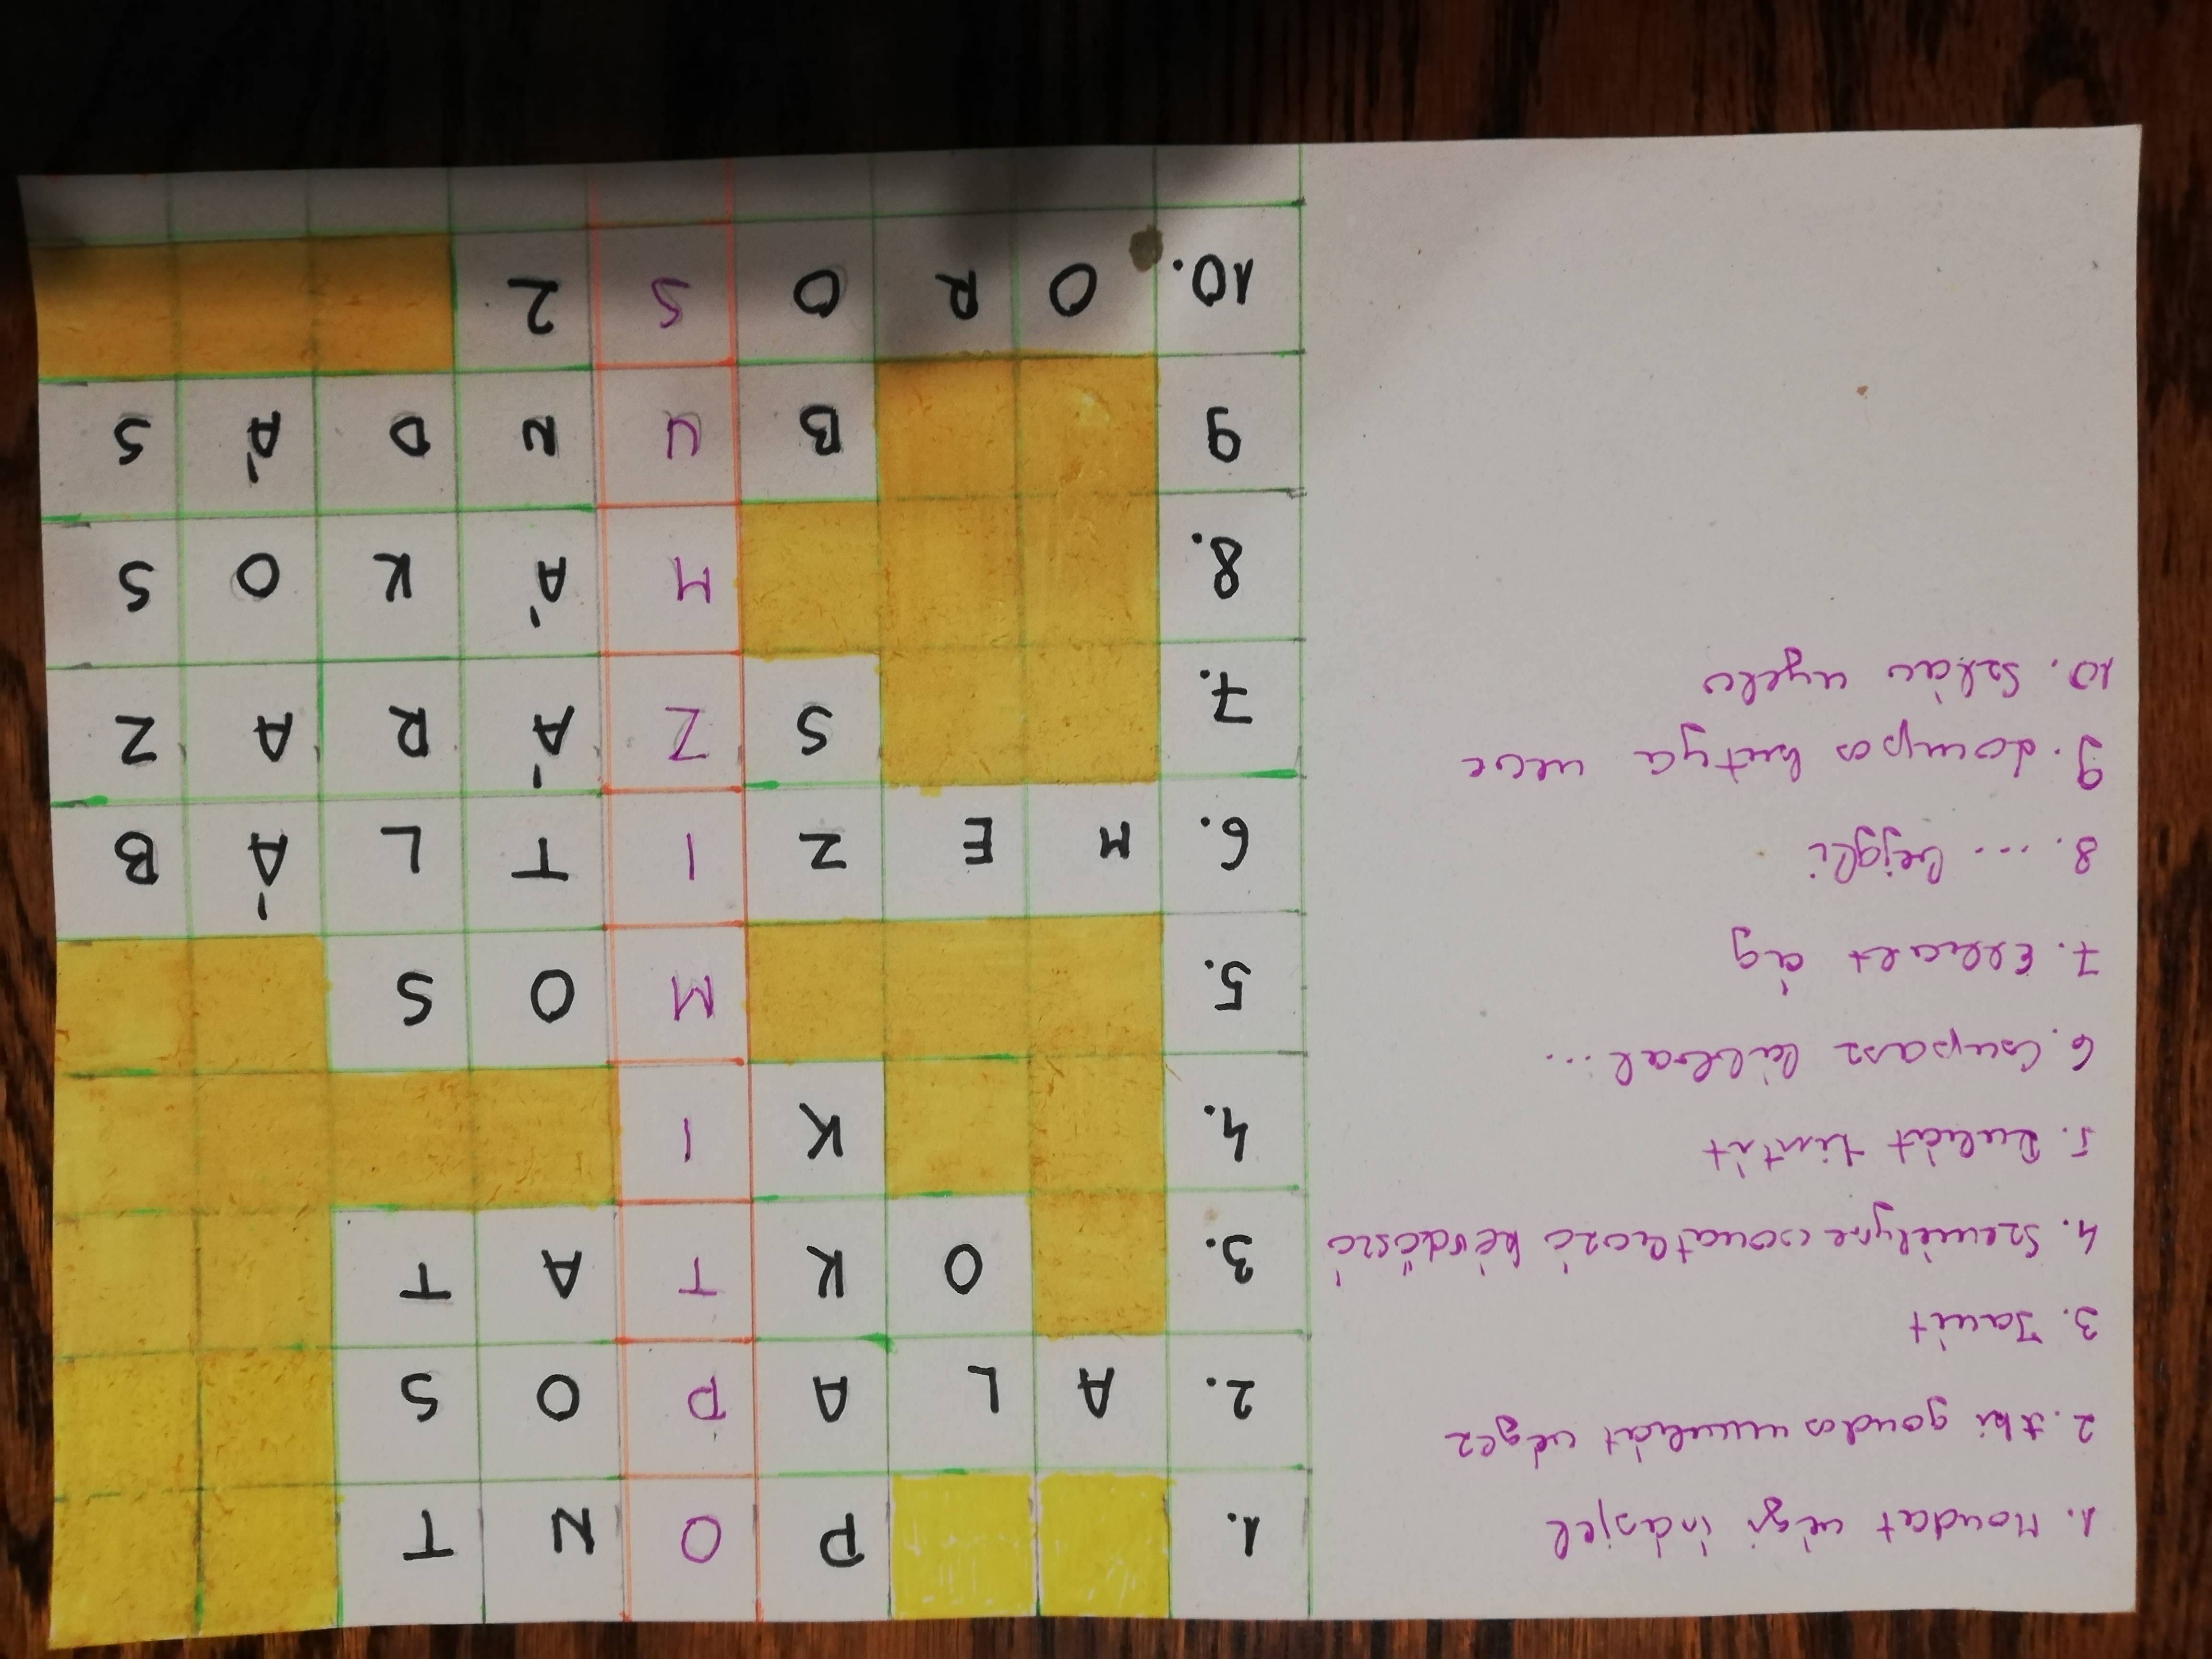 1. Mondat végi írásjel
2. Aki gondos munkát végez
3. Tanít
4. Személyre vonatkozó kérdőszó
5. Ruhát tisztít
6. Csupasz lábbal ...
7. ág
8. ... bejgli
9. Lompos kutya neve
10. Szláv nyelv
1. P O N T
2. A L A P O S
3. O K T A T
4. K I
5. M O S
6. M E Z I T L Á B
7. S Z Á R A Z
8. M Á K O S
9 B U N D Á S
10. O R O S Z